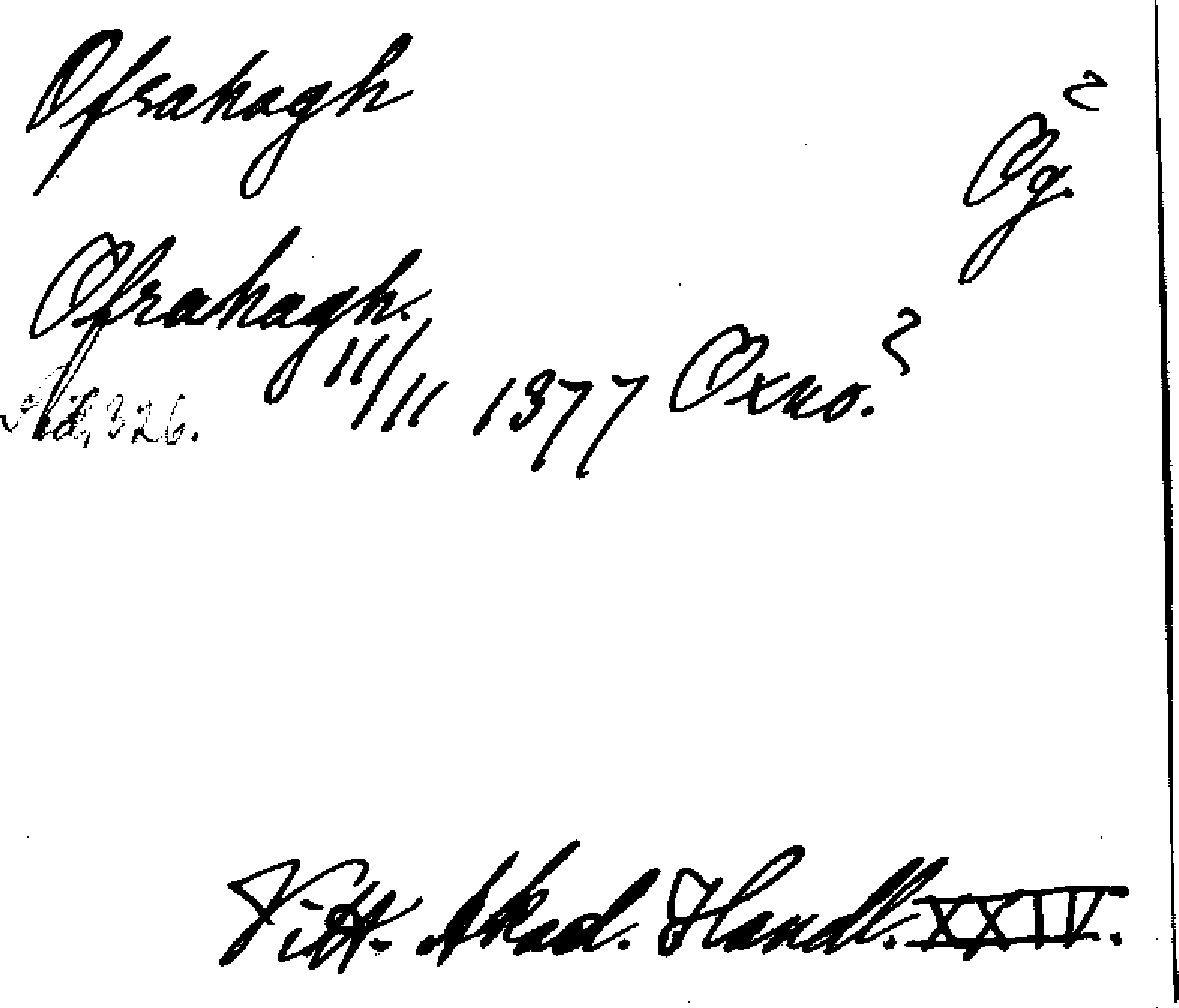 Ofrahagh
Og.?
Ofrahagh.
11/11 1377 Oxno.?
Sid. 326.
Vitt. Akad. Handl. XXIV.